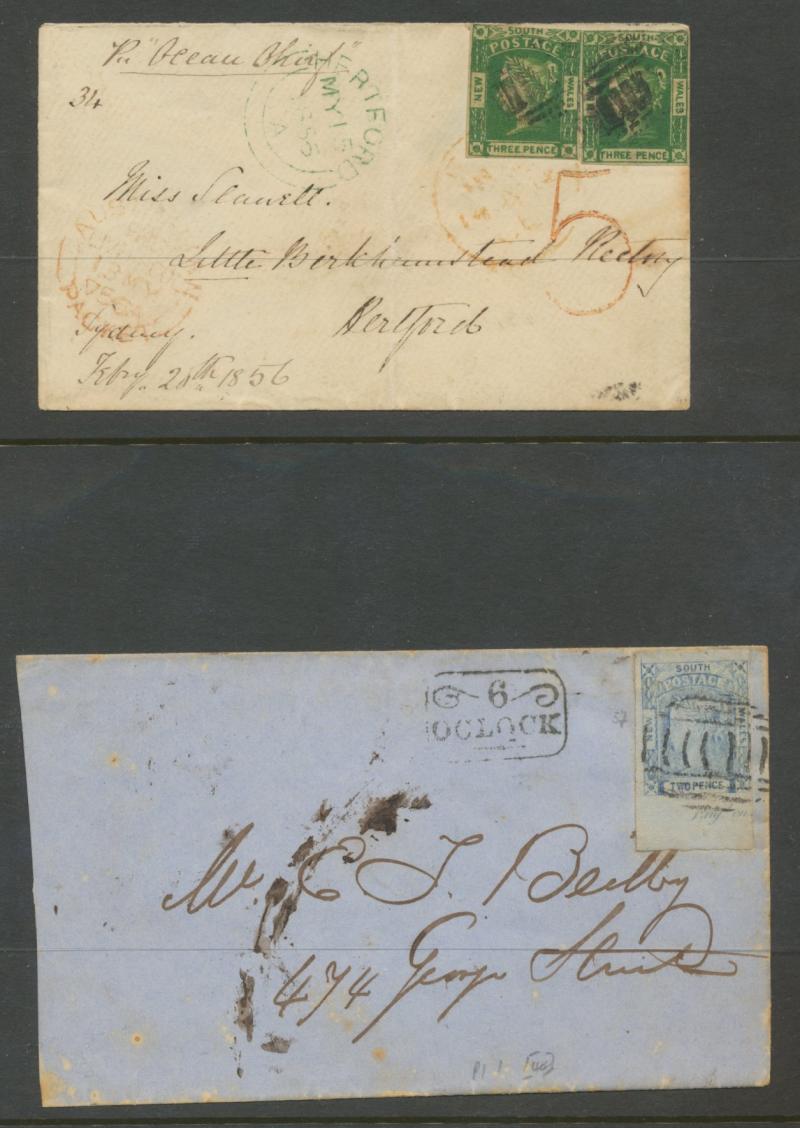 Per "Ocean Chief"
34
HERTFORD
MY 15
1856
A
SOUTH
POSTAGE
NEW
WALES
THREE PENCE
SOUTH
POSTAGE
WALES
THREE PENCE
5
Miss Stawell.
Little Berkhamstead Rectory
Hertford
PACKET
Sydney.
Feby. 20th 1856
6
OCLOCK
SOUTH
POSTAGE
NEW
WALES
TWO PENCE
Mr. E J. Beilby
474 George Street